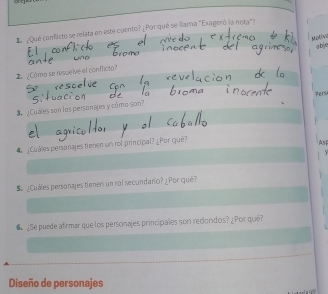 1. ¿Qué conflicto se relata en este cuento? ¿Por qué se llama "Exageró la nota"?
El conflicto es el miedo extremo
ante una broma inocente del agrimensor
2. ¿Cómo se resuelve el conflicto?
Se resuelve con la revelacion de la
situacion de la broma inocente
3. ¿Cuáles son los personajes y cómo son?
el agricultor y el caballo
4. ¿Cuáles personajes tienen un rol principal? ¿Por qué?
5. ¿Cuáles personajes tienen un rol secundario? ¿Por qué?
6. ¿Se puede afirmar que los personajes principales son redondos? ¿Por qué?
Diseño de personajes